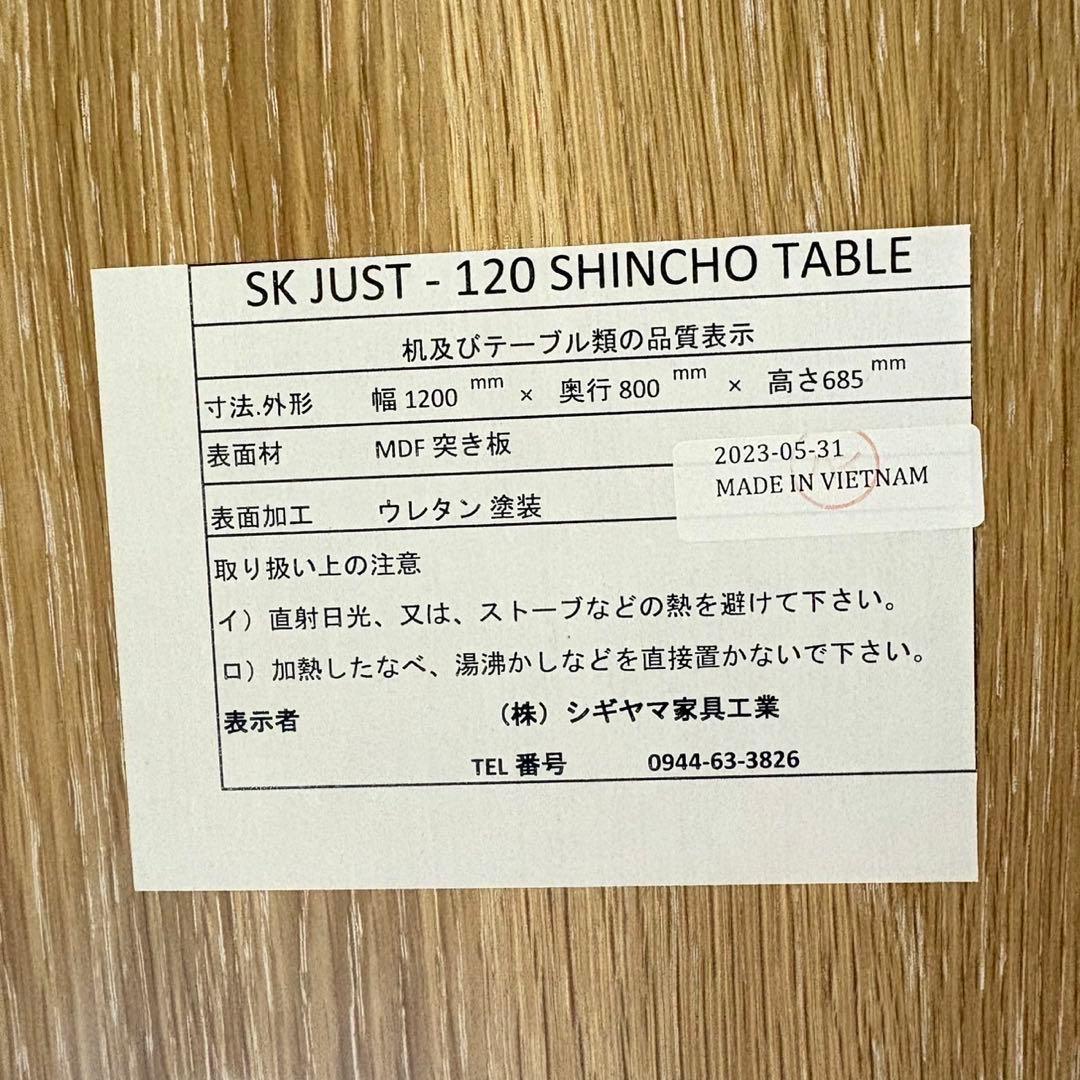 SK JUST - 120 SHINCHO TABLE
机及びテーブル類の品質表示
寸法.外形 幅 1200 mm × 奥行 800 mm × 高さ685 mm
表面材 MDF 突き板
2023-05-31
MADE IN VIETNAM
表面加工 ウレタン 塗装
取り扱い上の注意
イ）直射日光、又は、ストーブなどの熱を避けて下さい。
ロ）加熱したなべ、湯沸かしなどを直接置かないで下さい。
表示者 （株）シギヤマ家具工業
TEL 番号 0944-63-3826